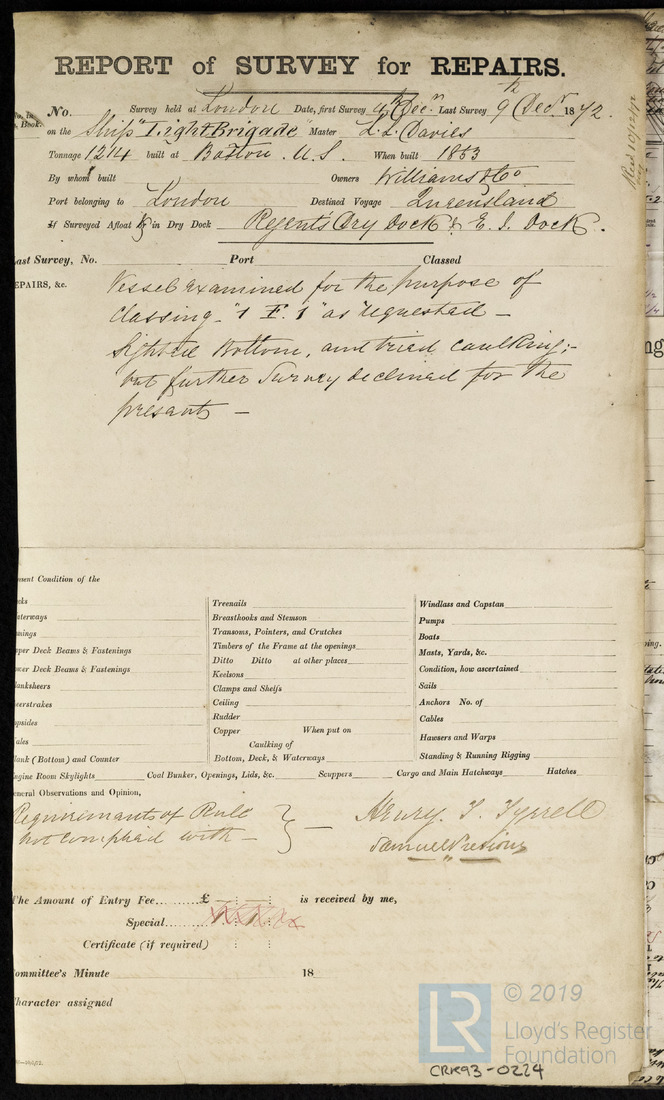 REPORT of SURVEY for REPAIRS.
No. Survey held at London Date, first Survey 4th Decr Last Survey 9th Decr 1872.
Book.
on the Ship "Light Brigade" Master L. L. Davies
Tonnage 1214 built at Boston. U.S. When built 1853
By whom built Owners Williams & Co
Port belonging to London Destined Voyage Queensland
If Surveyed Afloat & in Dry Dock Regent's Dry Dock & E. I. Dock.
ast Survey, No. Port Classed
EPAIRS, &c. Vessel examined for the purpose of
Classing "1 F. 1" as requested —
Sighted Bottom, and tried caulking;-
but further Survey declined for the
present —
Recd 10/12/72
sent Condition of the
cks
aterways
mings
pper Deck Beams & Fastenings
ower Deck Beams & Fastenings
lanksheers
eerstrakes
opsides
ales
lank (Bottom) and Counter
Treenails
Breasthooks and Stemson
Transoms, Pointers, and Crutches
Timbers of the Frame at the openings
Ditto Ditto at other places
Keelsons
Clamps and Shelfs
Ceiling
Rudder
Copper When put on
Caulking of
Bottom, Deck, & Waterways
Windlass and Capstan
Pumps
Boats
Masts, Yards, &c.
Condition, how ascertained
Sails
Anchors No. of
Cables
Hawsers and Warps
Standing & Running Rigging
ngine Room Skylights Coal Bunker, Openings, Lids, &c. Scuppers Cargo and Main Hatchways Hatches
eneral Observations and Opinion,
Requirements of Rule
not complied with — } — Henry. T. Tyrrell
Samuel Pretious
The Amount of Entry Fee £ : : is received by me,
Special
Certificate (if required)
ommittee's Minute 18
Character assigned
LR
© 2019
Lloyd's Register
Foundation
CRK93-0224